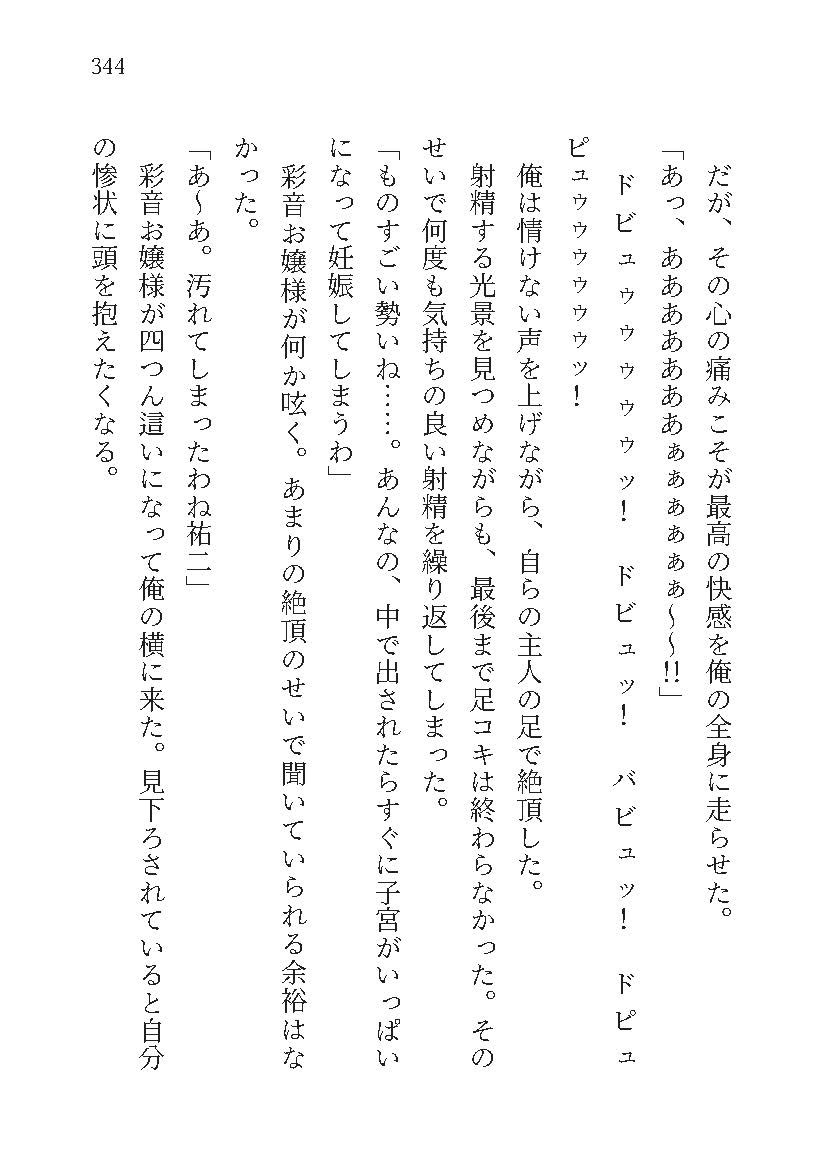 344
だが、その心の痛みこそが最高の快感を俺の全身に走らせた。
「あっ、あああああああぁぁぁぁぁぁ～～!!」
ドビュゥゥゥゥゥッ！　ドビュッ！　バビュッ！　ドピュ
ピュゥゥゥゥゥゥッ！
俺は情けない声を上げながら、自らの主人の足で絶頂した。
射精する光景を見つめながらも、最後まで足コキは終わらなかった。その
せいで何度も気持ちの良い射精を繰り返してしまった。
「ものすごい勢いね……。あんなの、中で出されたらすぐに子宮がいっぱい
になって妊娠してしまうわ」
彩音お嬢様が何か呟く。あまりの絶頂のせいで聞いていられる余裕はな
かった。
「あ～あ。汚れてしまったわね祐二」
彩音お嬢様が四つん這いになって俺の横に来た。見下ろされていると自分
の惨状に頭を抱えたくなる。